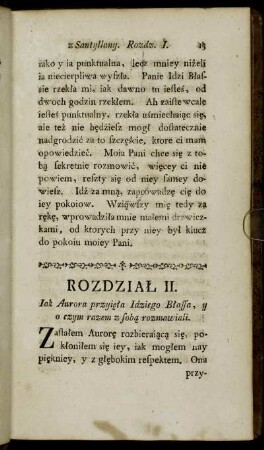 z Santyllany. Rozdz. I. 23
iako y ia punktualna, lecz mniey niżeli
ia niecierpliwa wyſzła. Panie Idzi Błaſ-
ſie rzekła mi, iak dawno tu ieſteś, od
dwoch godzin rzekłem. Ah zaiſte wcale
ieſteś punktualny, rzekła uśmiechaiąc się,
ale też nie będzieſz mogł doſtatecznie
nadgrodzić za to ſzczęście, ktore ci mam
opowiedzieć. Moia Pani chce się z to-
bą ſekretnie rozmowić, więcey ci nie
powiem, reſzty się od niey ſamey do-
wieſz. Idź za mną, zaprowadzę cię do
iey pokoiow. Wziąwſzy mię tedy za
rękę, wprowadziła mnie małemi drzwicz-
kami, od ktorych przy niey był klucz
do pokoiu moiey Pani.
ROZDZIAŁ II.
Iak Aurora przyięła Idziego Błaſſa, y
o czym razem z ſobą rozmawiali.
Zaſtałem Aurorę rozbieraiącą się, po-
kłoniłem się iey, iak mogłem nay
piękniey, y z głębokim reſpektem. Ona
przy-